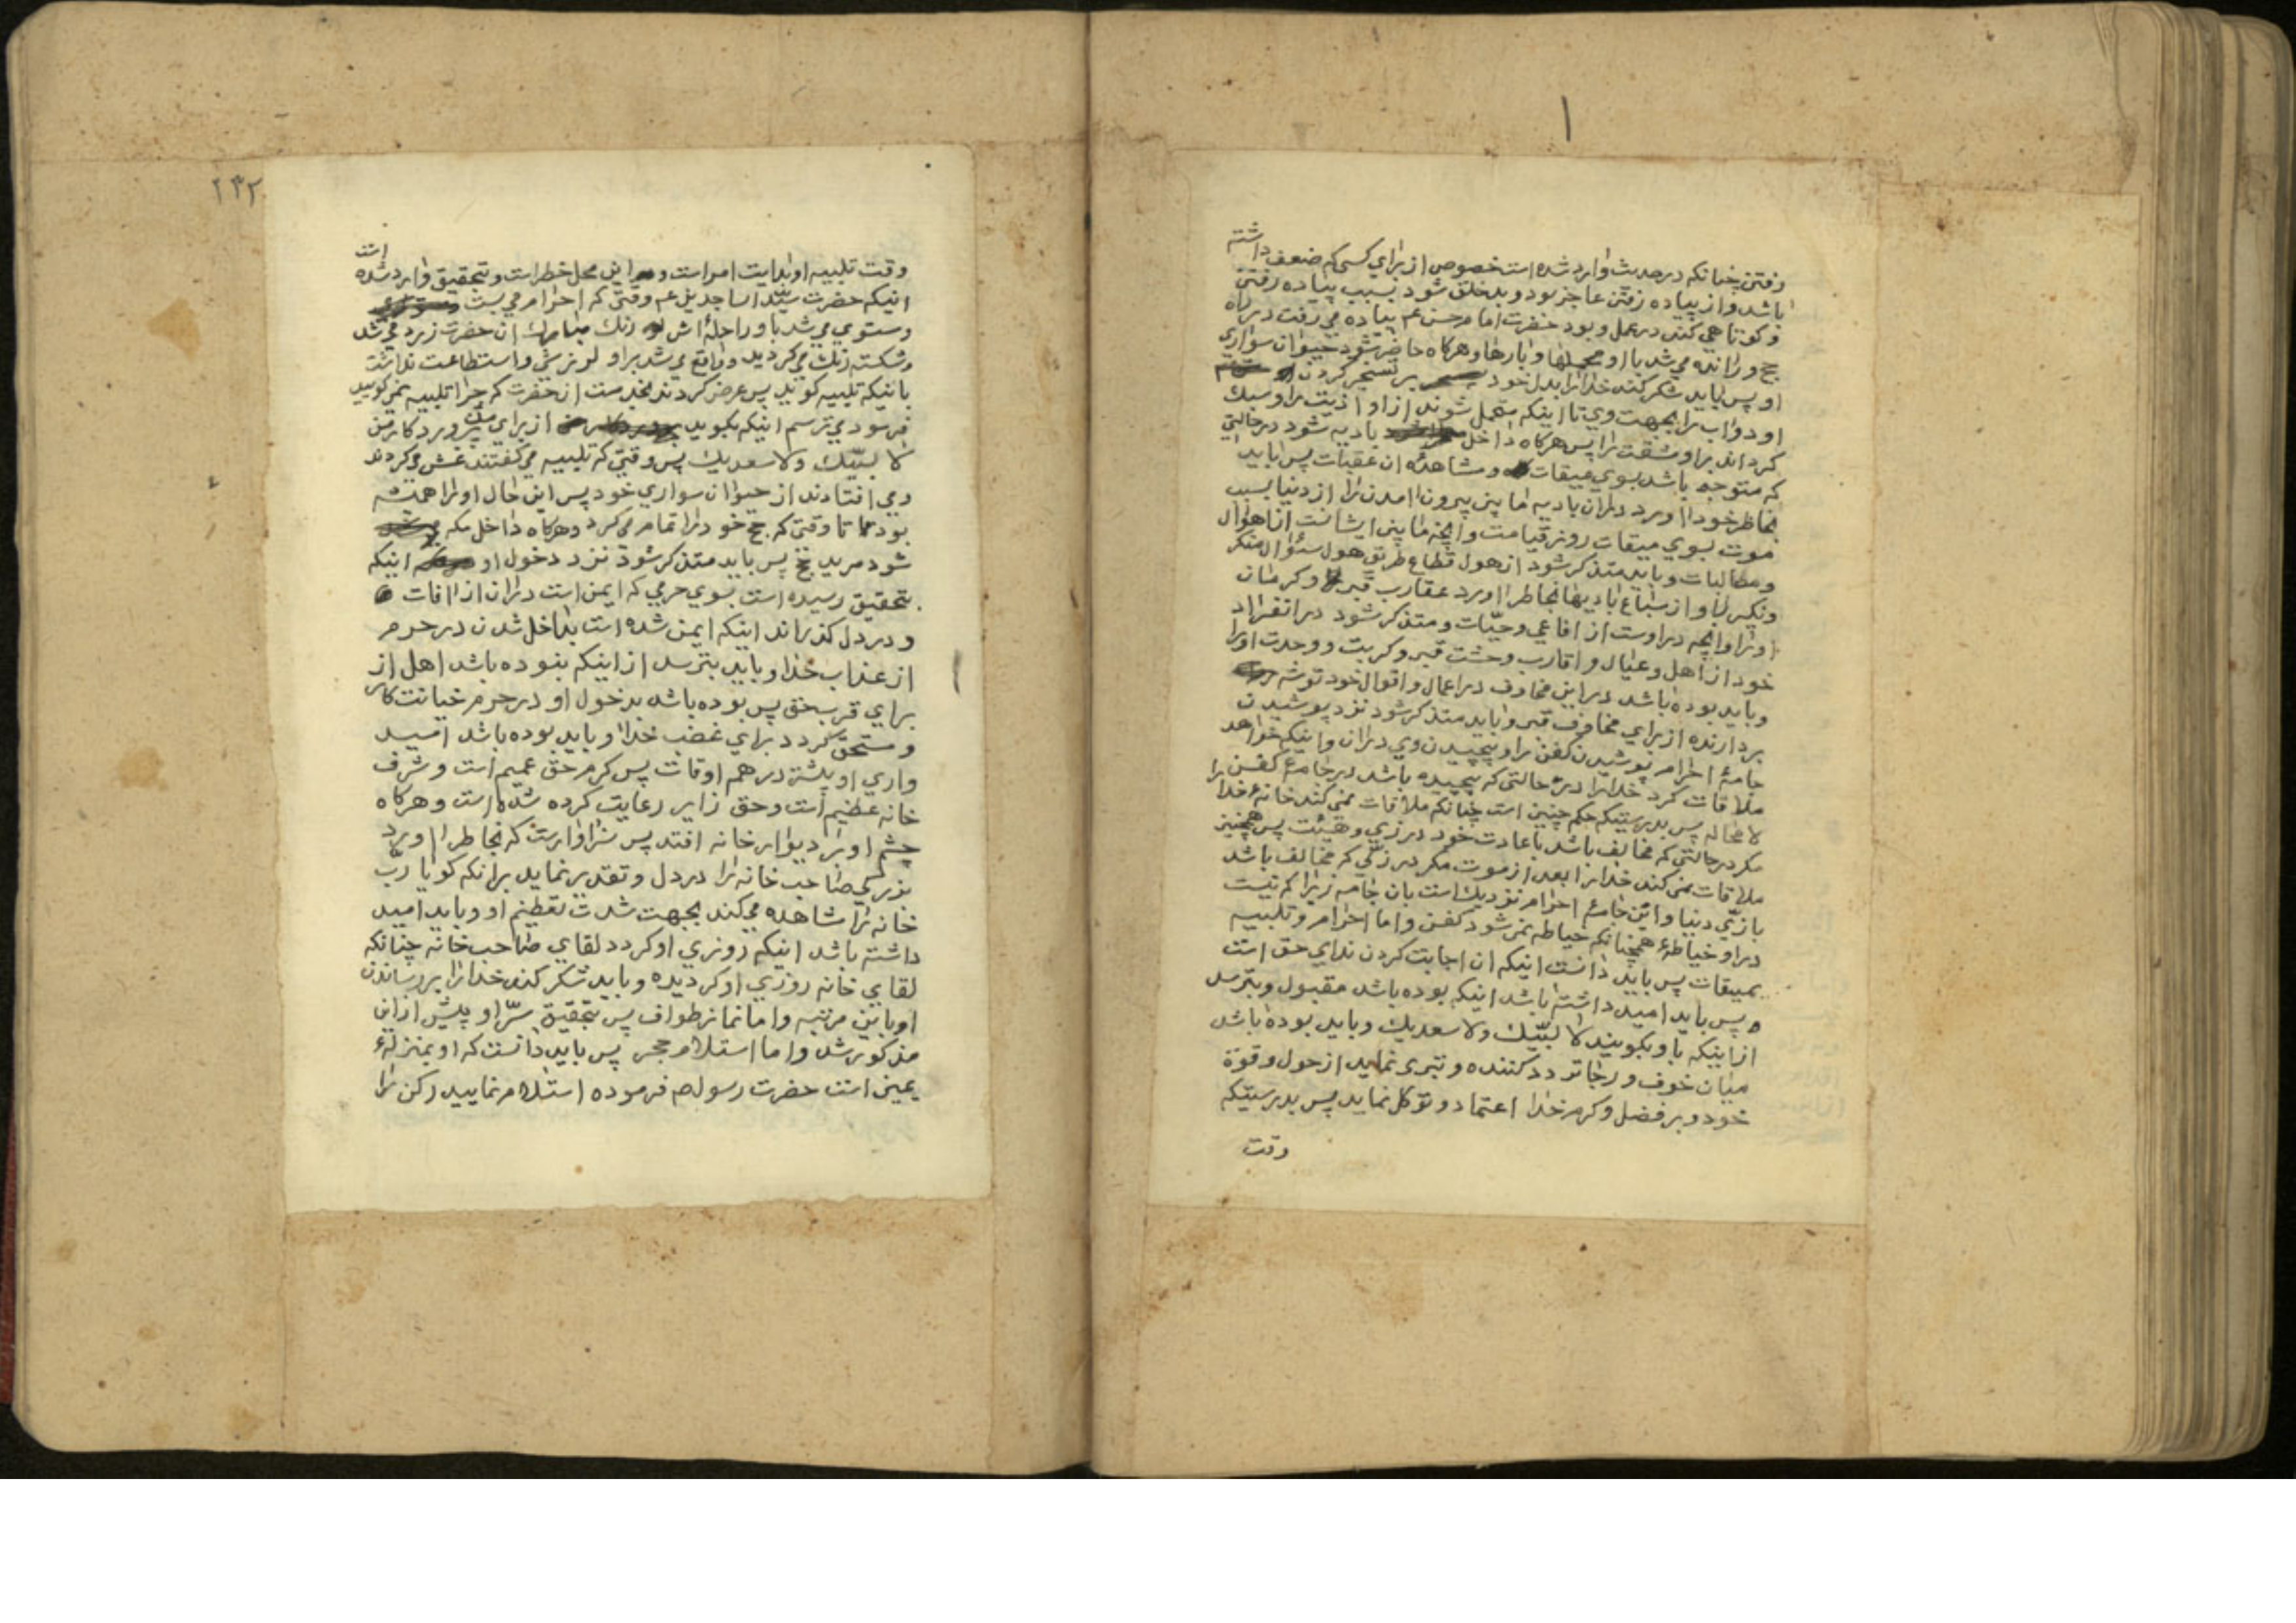 رفتن چنانکه در حدیث وارد شده است خصوص از برای کسی که ضعف داشته
باشد و از پیاده رفتن عاجز بود و بدخلق شود بسبب پیاده رفتن
و کوتاهی کند در عمل و بود حضرت امام حسن عم پیاده می رفت در راه
حج و رانده می شد با او محملها و بارها و هرکاه حاضر شود حیوان سواری
او پس باید شکر کند خدا را بدل خود بر تسخیر کردن
او دواب را بجهت وی تا اینکه متحمل شوند از او اذیت را و سبک
کرداند بر او مشقت را پس هرکاه داخل بادیه شود در حالتی
که متوجه باشد بسوی میقات و مشاهدۀ ان عقبات پس باید
بخاطر خود اورد در ان بادیه ما بین بیرون امدن را از دنیا بسبب
موت بسوی میقات روز قیامت و انچه ما بین ایشانست از اهوال
و مطالبات و باید متذکر شود از هول قطاع طریق هول سئوال منکر
و نکیر را و از سباع بادیها بخاطر اورد عقارب قبر و کرمان
او را و انچه در اوست از افاعی و حیّات و متذکر شود در انفراد
خود از اهل و عیال و اقارب وحشت قبر و کربت و وحدت او را
و باید بوده باشد در این مخاوف در اعمال و اقوال خود توشه
بردارنده از برای مخاوف قبر و باید متذکر شود نزد پوشیدن
جامۀ احرام پوشیدن کفن را و پیچیدن وی در ان و اینکه خواهد
ملاقات کرد خدا را در حالتی که پیچیده باشد در جامۀ کفن را
لا محاله پس بدرستیکه حکم چنین است چنانکه ملاقات نمی کند خانۀ خدا را
مکر در حالتی که مخالف باشد با عادت خود در زی و هیئت پس همچنین
ملاقات نمی کند خدا را بعد از موت مکر در زیّی که مخالف باشد
با زیّ دنیا و این جامۀ احرام نزدیک است بان جامه زیرا که نیست
در او خیاطۀ همچنانکه خیاطه نمی شود کفن و اما احرام و تلبیه
بمیقات پس باید دانست اینکه ان اجابت کردن ندای حق است
پس باید امید داشته باشد اینکه بوده باشد مقبول و بترسد
از اینکه باو بکویند لا لبّیک ولا سعدیک و باید بوده باشد
میان خوف و رجا تردد کننده و تبری نماید از حول و قوّة
خود و بر فضل و کرم خدا اعتماد و توکل نماید پس بدرستیکه
وقت
۱۳۲
وقت تلبیه او بدایت امر است و این محل خطر است و بتحقیق وارد شده است
اینکه حضرت سیّد الساجدین عم وقتی که احرام می بست
و مستوی می شد باو راحلۀ اش رنک مبارک ان حضرت زرد می شد
و شکسته رنک می کردید و واقع می شد بر او لرزشی و استطاعت نداشت
باینکه تلبیه کوید پس عرض کردند بخدمت ان حضرت که چرا تلبیه نمی کویید
فرمود می ترسم اینکه بکوید از برای من پروردکار من
لا لبّیک ولا سعدیک پس وقتی که تلبیه می کفتند غش می کردند
و می افتادند از حیوان سواری خود پس این حال او را همیشه
بود تا وقتی که حج خود را تمام می کرد و هرکاه داخل مکه
شود مرید حج پس باید متذکر شود نزد دخول او اینکه
بتحقیق رسیده است بسوی حرمی که ایمن است در ان از افات
و در دل کذراند اینکه ایمن شده است بداخل شدن در حرم
از عذاب خدا و باید بترسد از اینکه نبوده باشد اهل از
برای قرب حق پس بوده باشد بدخول او در حرم خیانت کار
و مستحق کردد برای غضب خدا و باید بوده باشد امید
واری او بیشتر در همه اوقات پس کرم حق عمیم است و شرف
خانه عظیم است و حق زایر رعایت کرده شده است و هرکاه
چشم او بر دیوار خانه افتد پس سزاوار است که بخاطر اورد
بزرکی صاحب خانه را در دل و تقدیر نماید برانکه کویا ربّ
خانه را مشاهده می کند بجهت شدت تعظیم او و باید امید
داشته باشد اینکه روزی او کردد لقای صاحب خانه چنانکه
لقای خانه روزی او کردیده و باید شکر کند خدا را بر رساندن
او باین مرتبه و اما نماز طواف پس بتحقیق سرّ او پیش از این
مذکور شد و اما استلام حجر پس باید دانست که او بمنزلۀ
یمین است حضرت رسول صم فرموده استلام نمایید رکن را